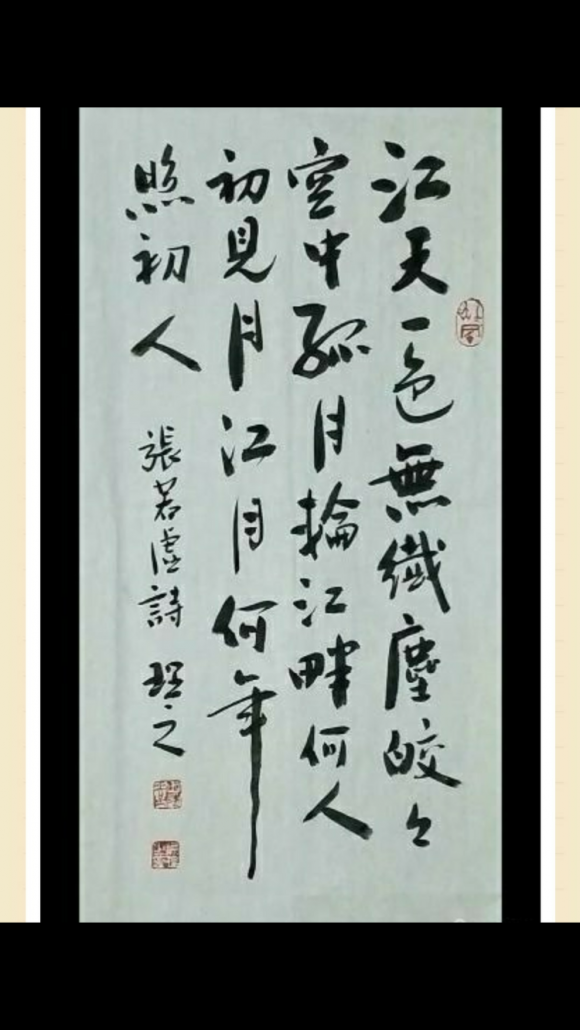 江天一色無纖塵皎々
空中孤月輪江畔何人
初見月江月何年
照初人
張若虛詩 珵之